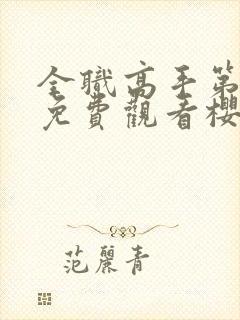 全職高手第
免費觀看櫻
范麗青